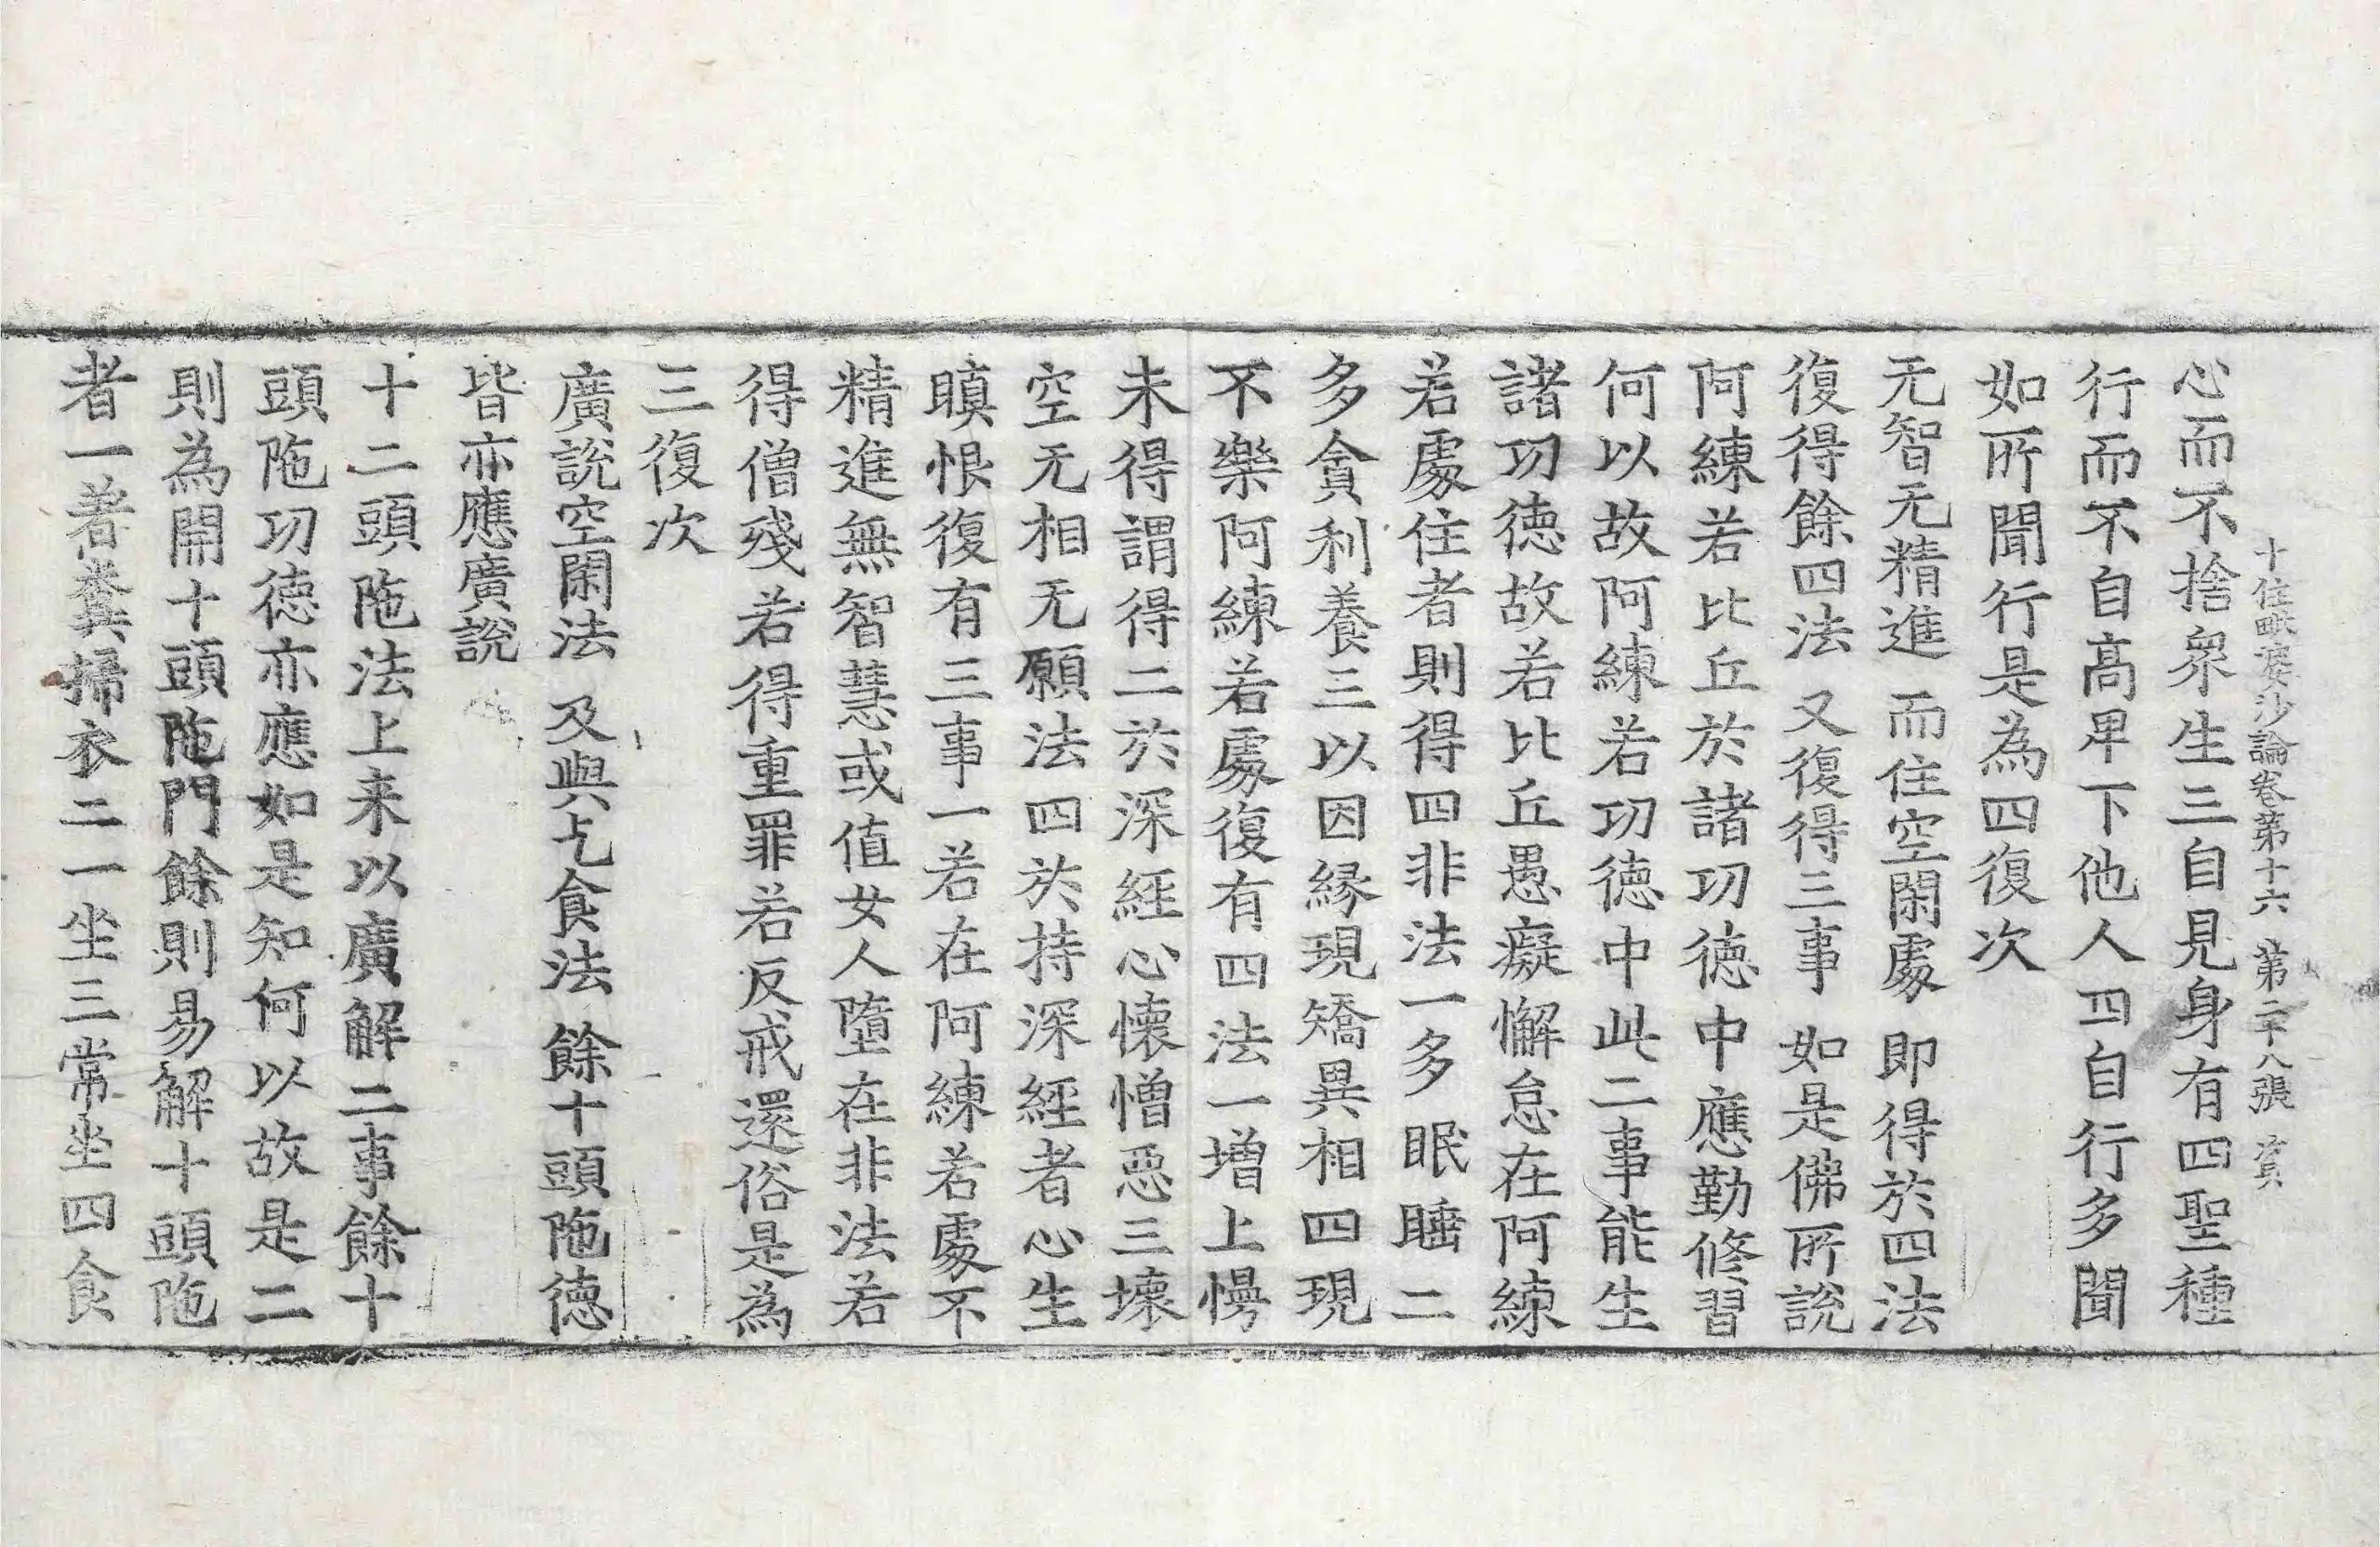 十住毗婆沙論卷第十六 第二十八張 賞
心而不捨衆生三自見身有四聖種
行而不自髙卑下他人四自行多聞
如所聞行是為四復次
无智无精進 而住空閑處 即得於四法
復得餘四法 又復得三事 如是佛所說
阿練若比丘於諸功德中應勤修習
何以故阿練若功德中此二事能生
諸功德故若比丘愚癡懈怠在阿練
若處住者則得四非法一多眠睡二
多貪利養三以因緣現矯異相四現
不樂阿練若處復有四法一增上慢
未得謂得二於深經心懷憎惡三壞
空无相无願法四於持深經者心生
瞋恨復有三事一若在阿練若處不
精進無智慧或值女人墮在非法若
得僧殘若得重罪若反戒還俗是為
三復次
廣說空閑法 及與乞食法 餘十頭陁德
皆亦應廣說
十二頭陁法上来以廣解二事餘十
頭陁功德亦應如是知何以故是二
則為開十頭陁門餘則易解十頭陁
者一著糞掃衣二一坐三常坐四食